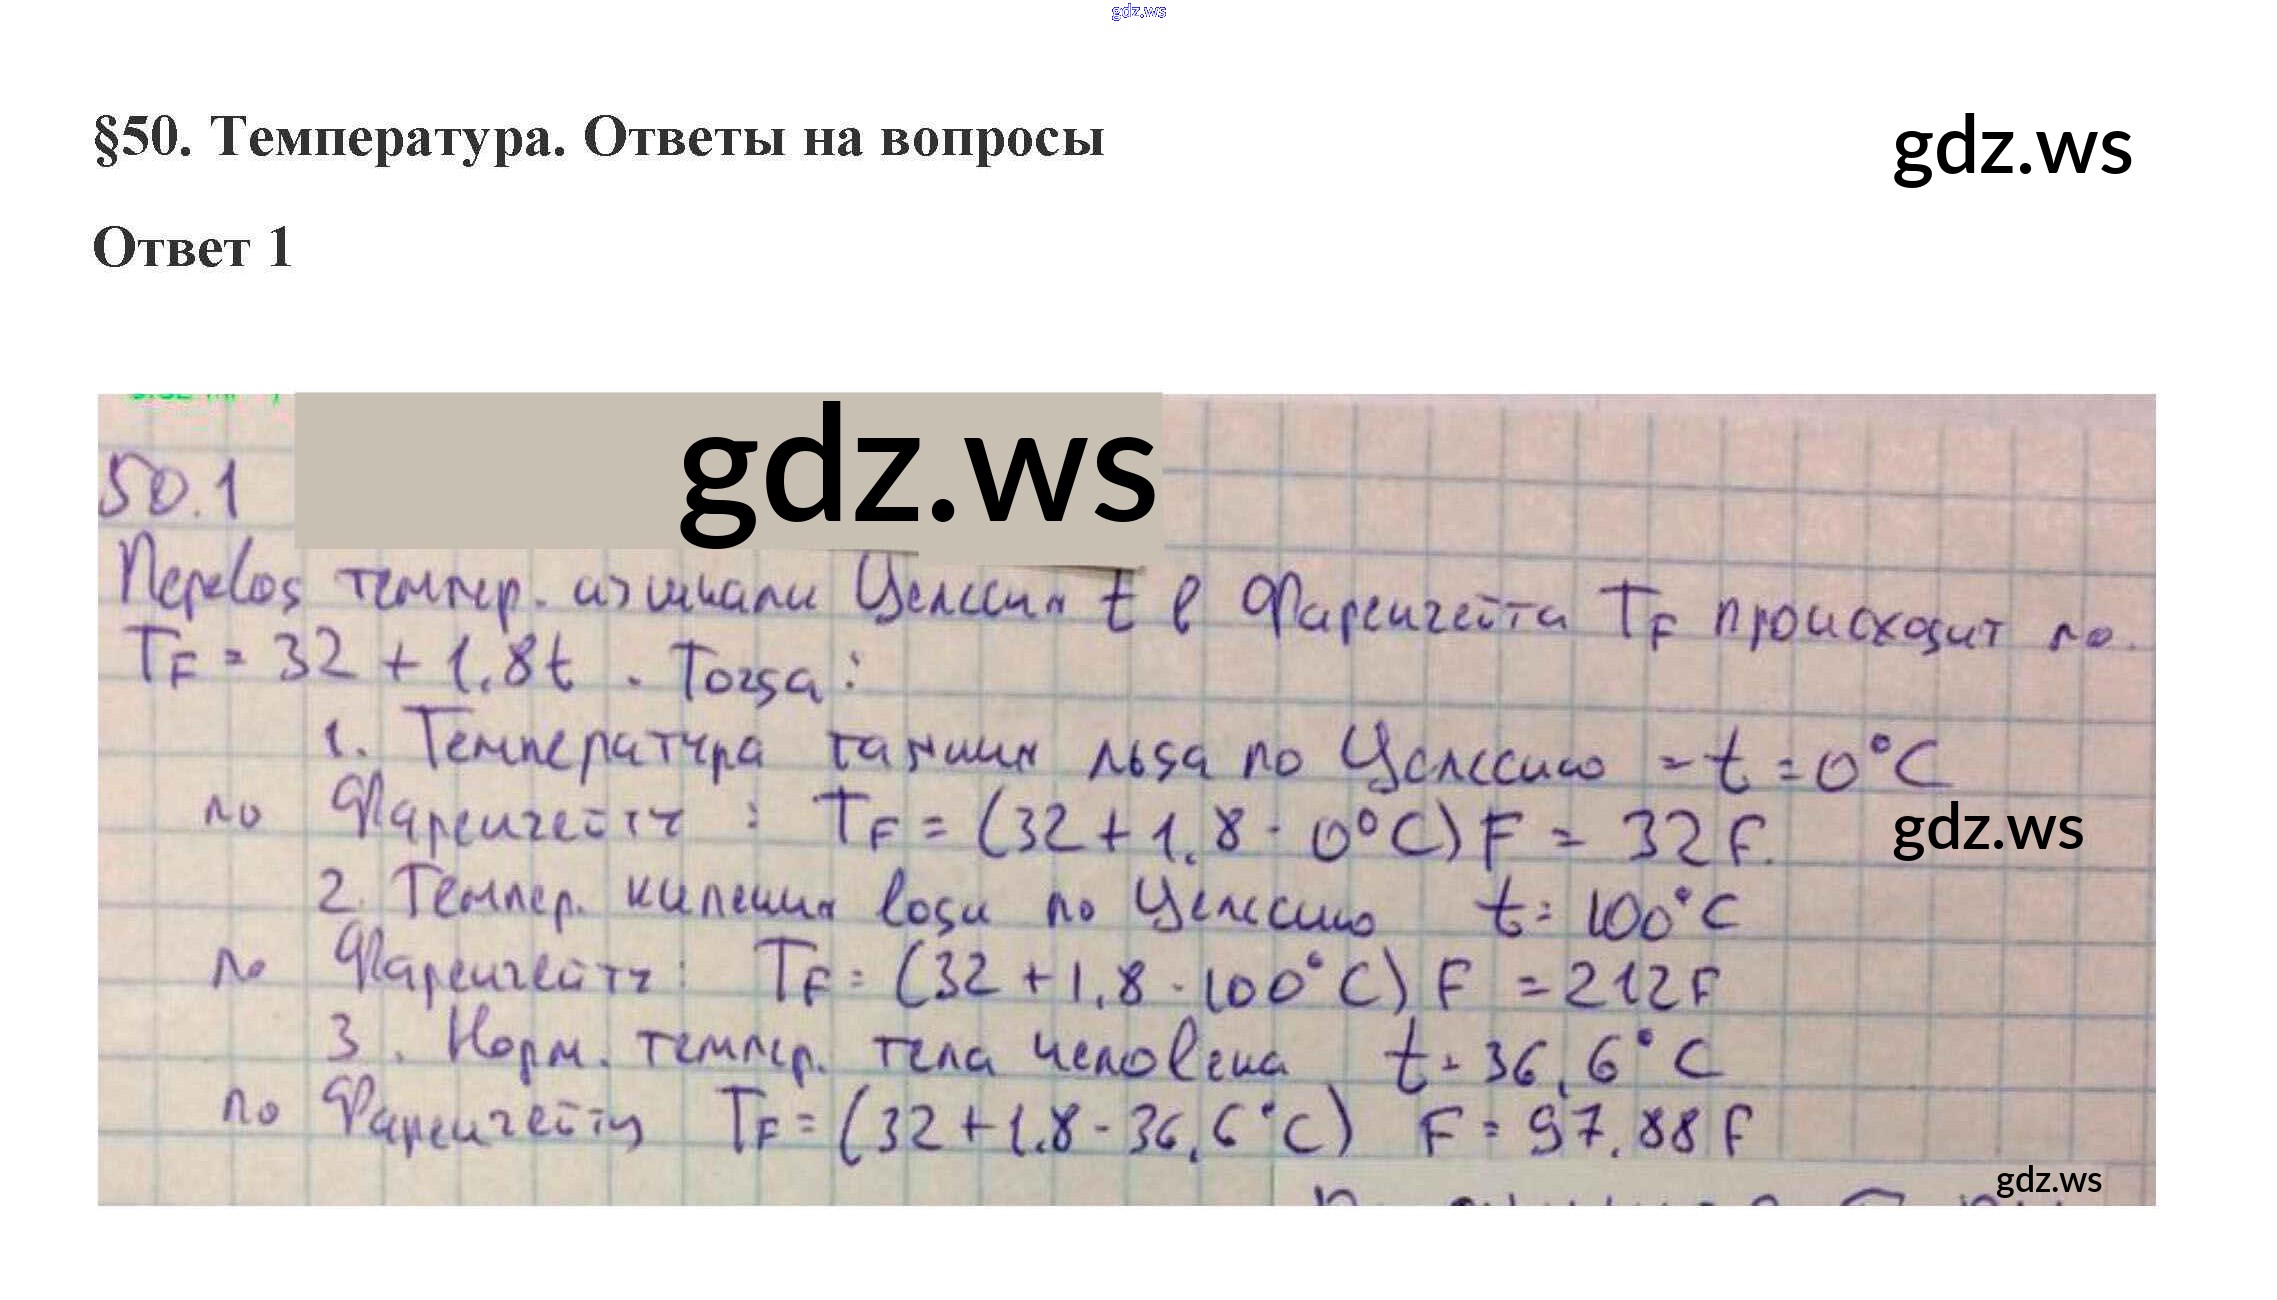 gdz.ws
§50. Температура. Ответы на вопросы
gdz.ws
Ответ 1
gdz.ws
50.1
Перевод темпер. из шкалы Цельсия t в Фаренгейта T_F происходит по
T_F = 32 + 1.8t. Тогда:
1. Температура таяния льда по Цельсию - t = 0°C
по Фаренгейту: T_F = (32 + 1.8 · 0°C) F = 32 F.
gdz.ws
2. Темпер. кипения воды по Цельсию t = 100°C
по Фаренгейту: T_F = (32 + 1.8 · 100°C) F = 212 F
3. Норм. темпер. тела человека t = 36,6°C
по Фаренгейту T_F = (32 + 1.8 · 36,6°C) F = 97.88 F
gdz.ws